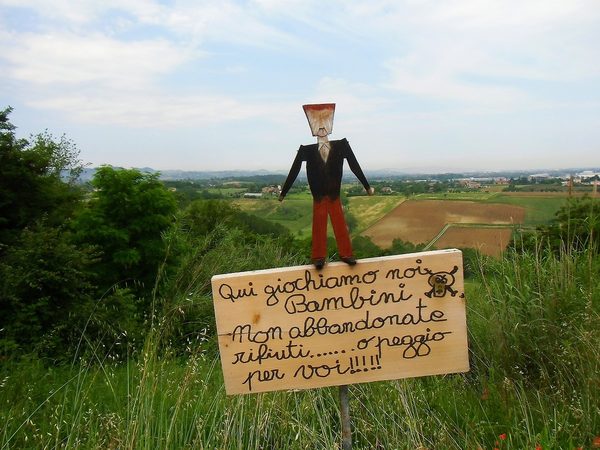 Qui giochiamo noi
Bambini
Non abbandonate
rifiuti....... o peggio
per voi!!!!!